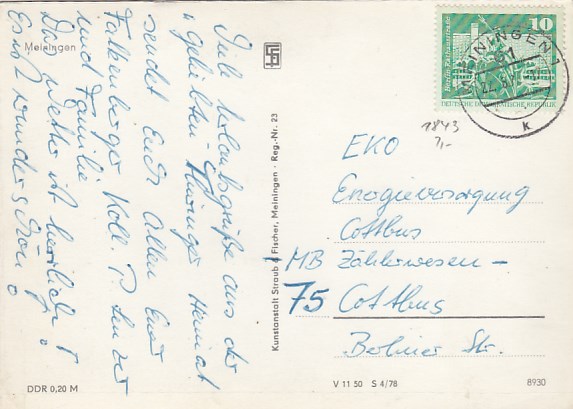 Meiningen
Viele Urlaubsgrüße aus der
"geliebten" Thüringer Heimat
sendet Euch Allen Euer
Falkenberger Koll. P.
und Familie
Das Wetter ist herrlich!
Es ist wunderschön!
DDR 0,20 M
Kunstanstalt Straub & Fischer, Meiningen · Reg.-Nr. 23
10
DEUTSCHE DEMOKRATISCHE REPUBLIK
MEININGEN 1
61
22.
k
1843
EKO
Energieversorgung
Cottbus
MB Zählerwesen –
75 Cottbus
Berliner Str.
V 11 50 S 4/78
8930